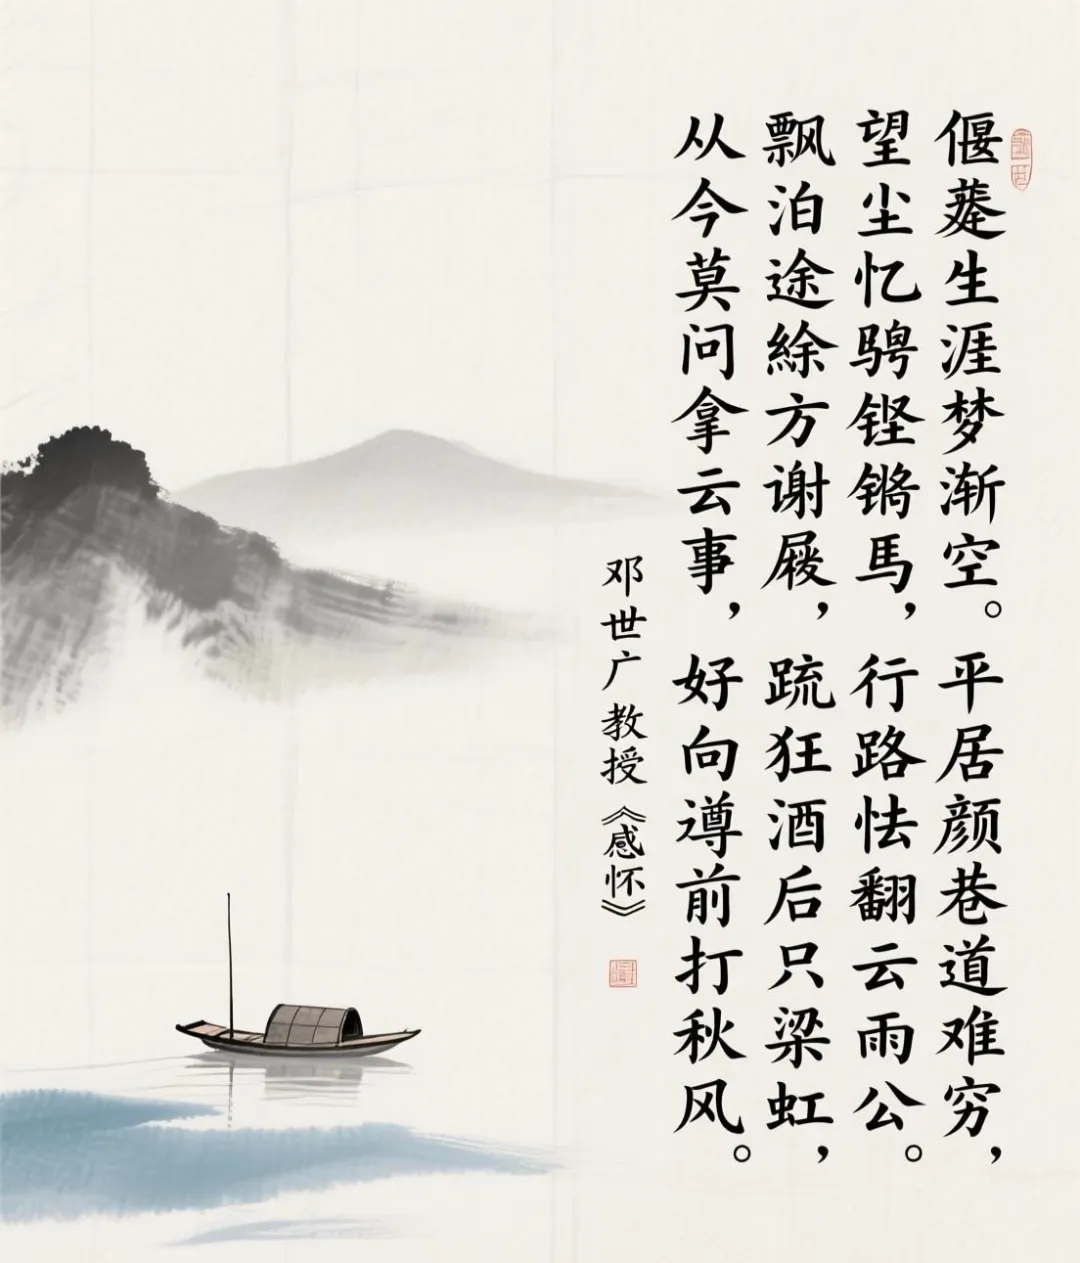 偃生涯梦渐空。平居颜巷道难穷，
望尘忆骋铿锵馬，行路怯翻云雨公。
飘泊途方谢，疏狂酒后只梁虹，
从今莫问拿云事，好向遵前打秋风。
邓世广教授《感怀》